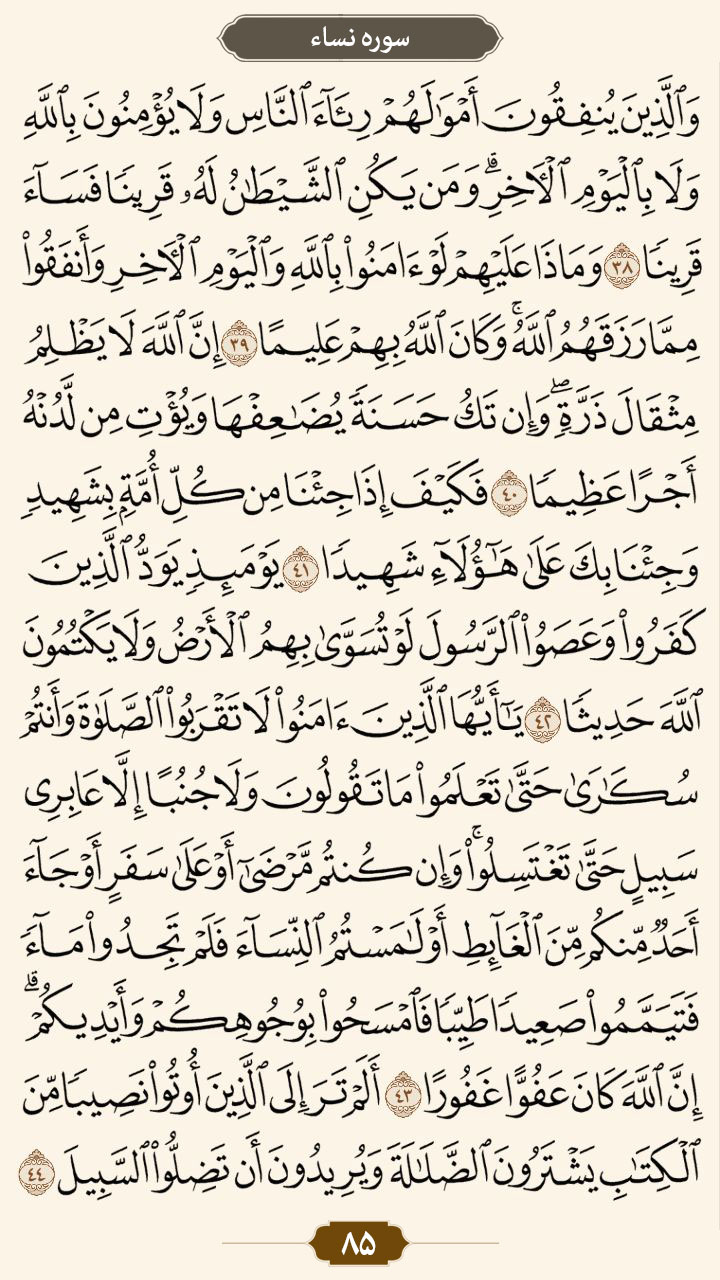 سوره نساء
وَٱلَّذِينَ يُنفِقُونَ أَمۡوَٰلَهُمۡ رِئَآءَ ٱلنَّاسِ وَلَا يُؤۡمِنُونَ بِٱللَّهِ
وَلَا بِٱلۡيَوۡمِ ٱلۡأٓخِرِۗ وَمَن يَكُنِ ٱلشَّيۡطَٰنُ لَهُۥ قَرِينٗا فَسَآءَ
قَرِينٗا ٣٨ وَمَاذَا عَلَيۡهِمۡ لَوۡ ءَامَنُواْ بِٱللَّهِ وَٱلۡيَوۡمِ ٱلۡأٓخِرِ وَأَنفَقُواْ
مِمَّا رَزَقَهُمُ ٱللَّهُۚ وَكَانَ ٱللَّهُ بِهِمۡ عَلِيمًا ٣٩ إِنَّ ٱللَّهَ لَا يَظۡلِمُ
مِثۡقَالَ ذَرَّةٖۖ وَإِن تَكُ حَسَنَةٗ يُضَٰعِفۡهَا وَيُؤۡتِ مِن لَّدُنۡهُ
أَجۡرًا عَظِيمٗا ٤٠ فَكَيۡفَ إِذَا جِئۡنَا مِن كُلِّ أُمَّةِۭ بِشَهِيدٖ
وَجِئۡنَا بِكَ عَلَىٰ هَٰٓؤُلَآءِ شَهِيدٗا ٤١ يَوۡمَئِذٖ يَوَدُّ ٱلَّذِينَ
كَفَرُواْ وَعَصَوُاْ ٱلرَّسُولَ لَوۡ تُسَوَّىٰ بِهِمُ ٱلۡأَرۡضُ وَلَا يَكۡتُمُونَ
ٱللَّهَ حَدِيثٗا ٤٢ يَٰٓأَيُّهَا ٱلَّذِينَ ءَامَنُواْ لَا تَقۡرَبُواْ ٱلصَّلَوٰةَ وَأَنتُمۡ
سُكَٰرَىٰ حَتَّىٰ تَعۡلَمُواْ مَا تَقُولُونَ وَلَا جُنُبًا إِلَّا عَابِرِي
سَبِيلٍ حَتَّىٰ تَغۡتَسِلُواْۚ وَإِن كُنتُم مَّرۡضَىٰٓ أَوۡ عَلَىٰ سَفَرٍ أَوۡ جَآءَ
أَحَدٞ مِّنكُم مِّنَ ٱلۡغَآئِطِ أَوۡ لَٰمَسۡتُمُ ٱلنِّسَآءَ فَلَمۡ تَجِدُواْ مَآءٗ
فَتَيَمَّمُواْ صَعِيدٗا طَيِّبٗا فَٱمۡسَحُواْ بِوُجُوهِكُمۡ وَأَيۡدِيكُمۡۗ
إِنَّ ٱللَّهَ كَانَ عَفُوًّا غَفُورًا ٤٣ أَلَمۡ تَرَ إِلَى ٱلَّذِينَ أُوتُواْ نَصِيبٗا مِّنَ
ٱلۡكِتَٰبِ يَشۡتَرُونَ ٱلضَّلَٰلَةَ وَيُرِيدُونَ أَن تَضِلُّواْ ٱلسَّبِيلَ ٤٤
۸۵